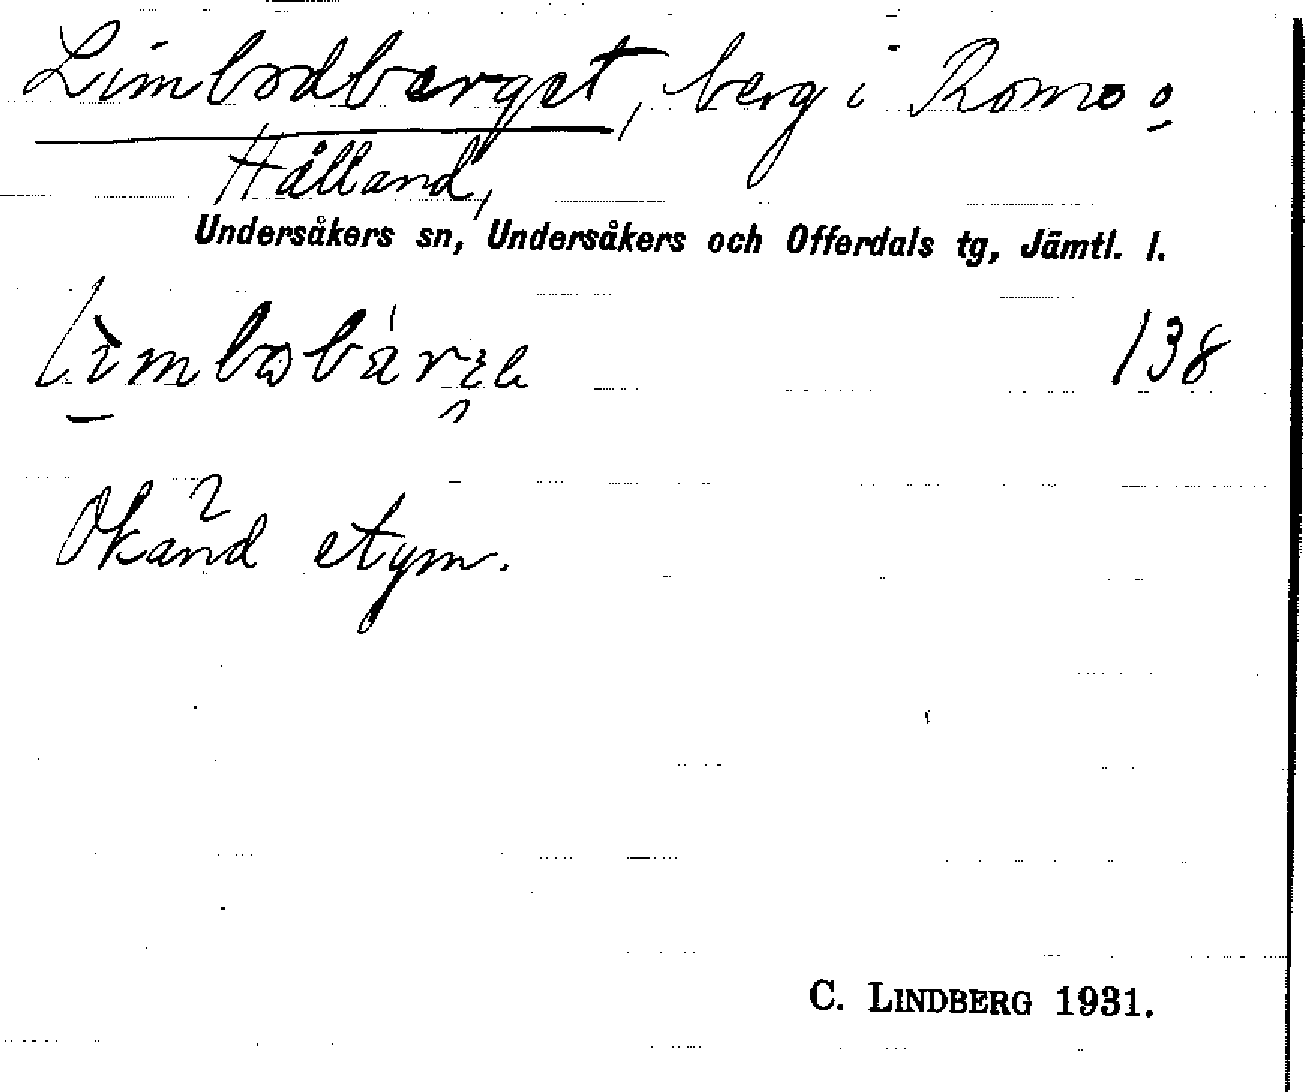 Limbodberget, berg i Romo o
Hålland,
Undersåkers sn, Undersåkers och Offerdals tg, Jämtl. l.
138
Okänd etym.
C. LINDBERG 1931.